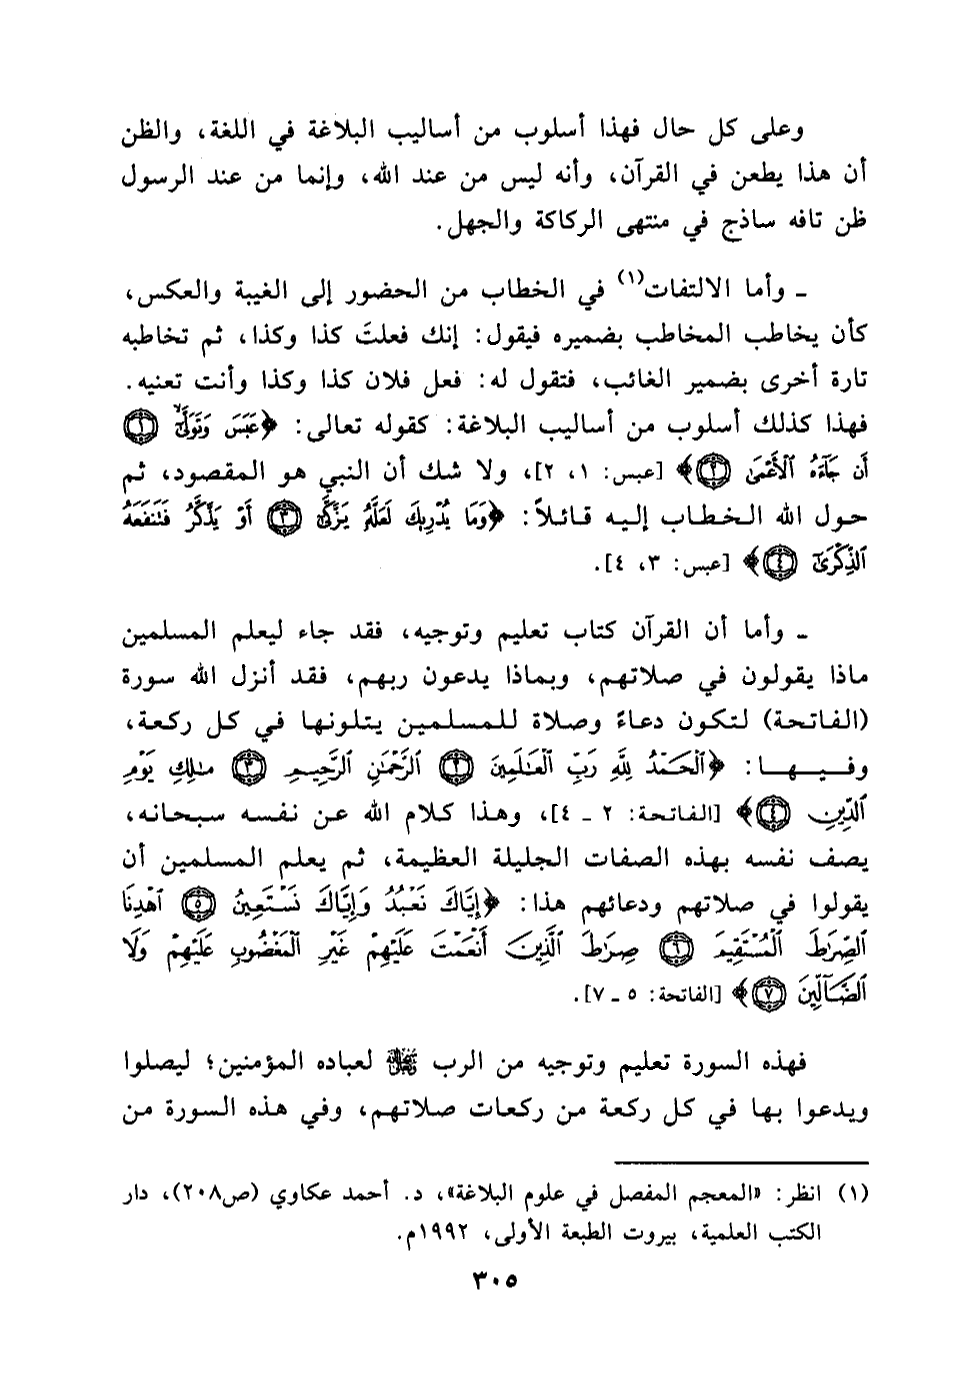 وعلى كل حال فهذا أسلوب من أساليب البلاغة في اللغة، والظن
أن هذا يطعن في القرآن، وأنه ليس من عند الله، وإنما من عند الرسول
ظن تافه ساذج في منتهى الركاكة والجهل.
ـ وأما الالتفات(١) في الخطاب من الحضور إلى الغيبة والعكس،
كأن يخاطب المخاطب بضميره فيقول: إنك فعلتَ كذا وكذا، ثم تخاطبه
تارة أخرى بضمير الغائب، فتقول له: فعل فلان كذا وكذا وأنت تعنيه.
فهذا كذلك أسلوب من أساليب البلاغة: كقوله تعالى: ﴿عَبَسَ وَتَوَلَّىٰٓ ۝١
أَن جَآءَهُ ٱلْأَعْمَىٰ ۝٢﴾ [عبس: ١، ٢]، ولا شك أن النبي هو المقصود، ثم
حول الله الخطاب إليه قائلاً: ﴿وَمَا يُدْرِيكَ لَعَلَّهُۥ يَزَّكَّىٰٓ ۝٣ أَوْ يَذَّكَّرُ فَتَنفَعَهُ
ٱلذِّكْرَىٰٓ ۝٤﴾ [عبس: ٣، ٤].
ـ وأما أن القرآن كتاب تعليم وتوجيه، فقد جاء ليعلم المسلمين
ماذا يقولون في صلاتهم، وبماذا يدعون ربهم، فقد أنزل الله سورة
(الفاتحة) لتكون دعاءً وصلاة للمسلمين يتلونها في كل ركعة،
وفيها: ﴿ٱلْحَمْدُ لِلَّهِ رَبِّ ٱلْعَٰلَمِينَ ۝٢ ٱلرَّحْمَٰنِ ٱلرَّحِيمِ ۝٣ مَٰلِكِ يَوْمِ
ٱلدِّينِ ۝٤﴾ [الفاتحة: ٢ ـ ٤]، وهذا كلام الله عن نفسه سبحانه،
يصف نفسه بهذه الصفات الجليلة العظيمة، ثم يعلم المسلمين أن
يقولوا في صلاتهم ودعائهم هذا: ﴿إِيَّاكَ نَعْبُدُ وَإِيَّاكَ نَسْتَعِينُ ۝٥ ٱهْدِنَا
ٱلصِّرَٰطَ ٱلْمُسْتَقِيمَ ۝٦ صِرَٰطَ ٱلَّذِينَ أَنْعَمْتَ عَلَيْهِمْ غَيْرِ ٱلْمَغْضُوبِ عَلَيْهِمْ وَلَا
ٱلضَّآلِّينَ ۝٧﴾ [الفاتحة: ٥ ـ ٧].
فهذه السورة تعليم وتوجيه من الرب لعباده المؤمنين؛ ليصلوا
ويدعوا بها في كل ركعة من ركعات صلاتهم، وفي هذه السورة من
(١) انظر: «المعجم المفصل في علوم البلاغة»، د. أحمد عكاوي (ص٢٠٨)، دار
الكتب العلمية، بيروت الطبعة الأولى، ١٩٩٢م.
٣٠٥